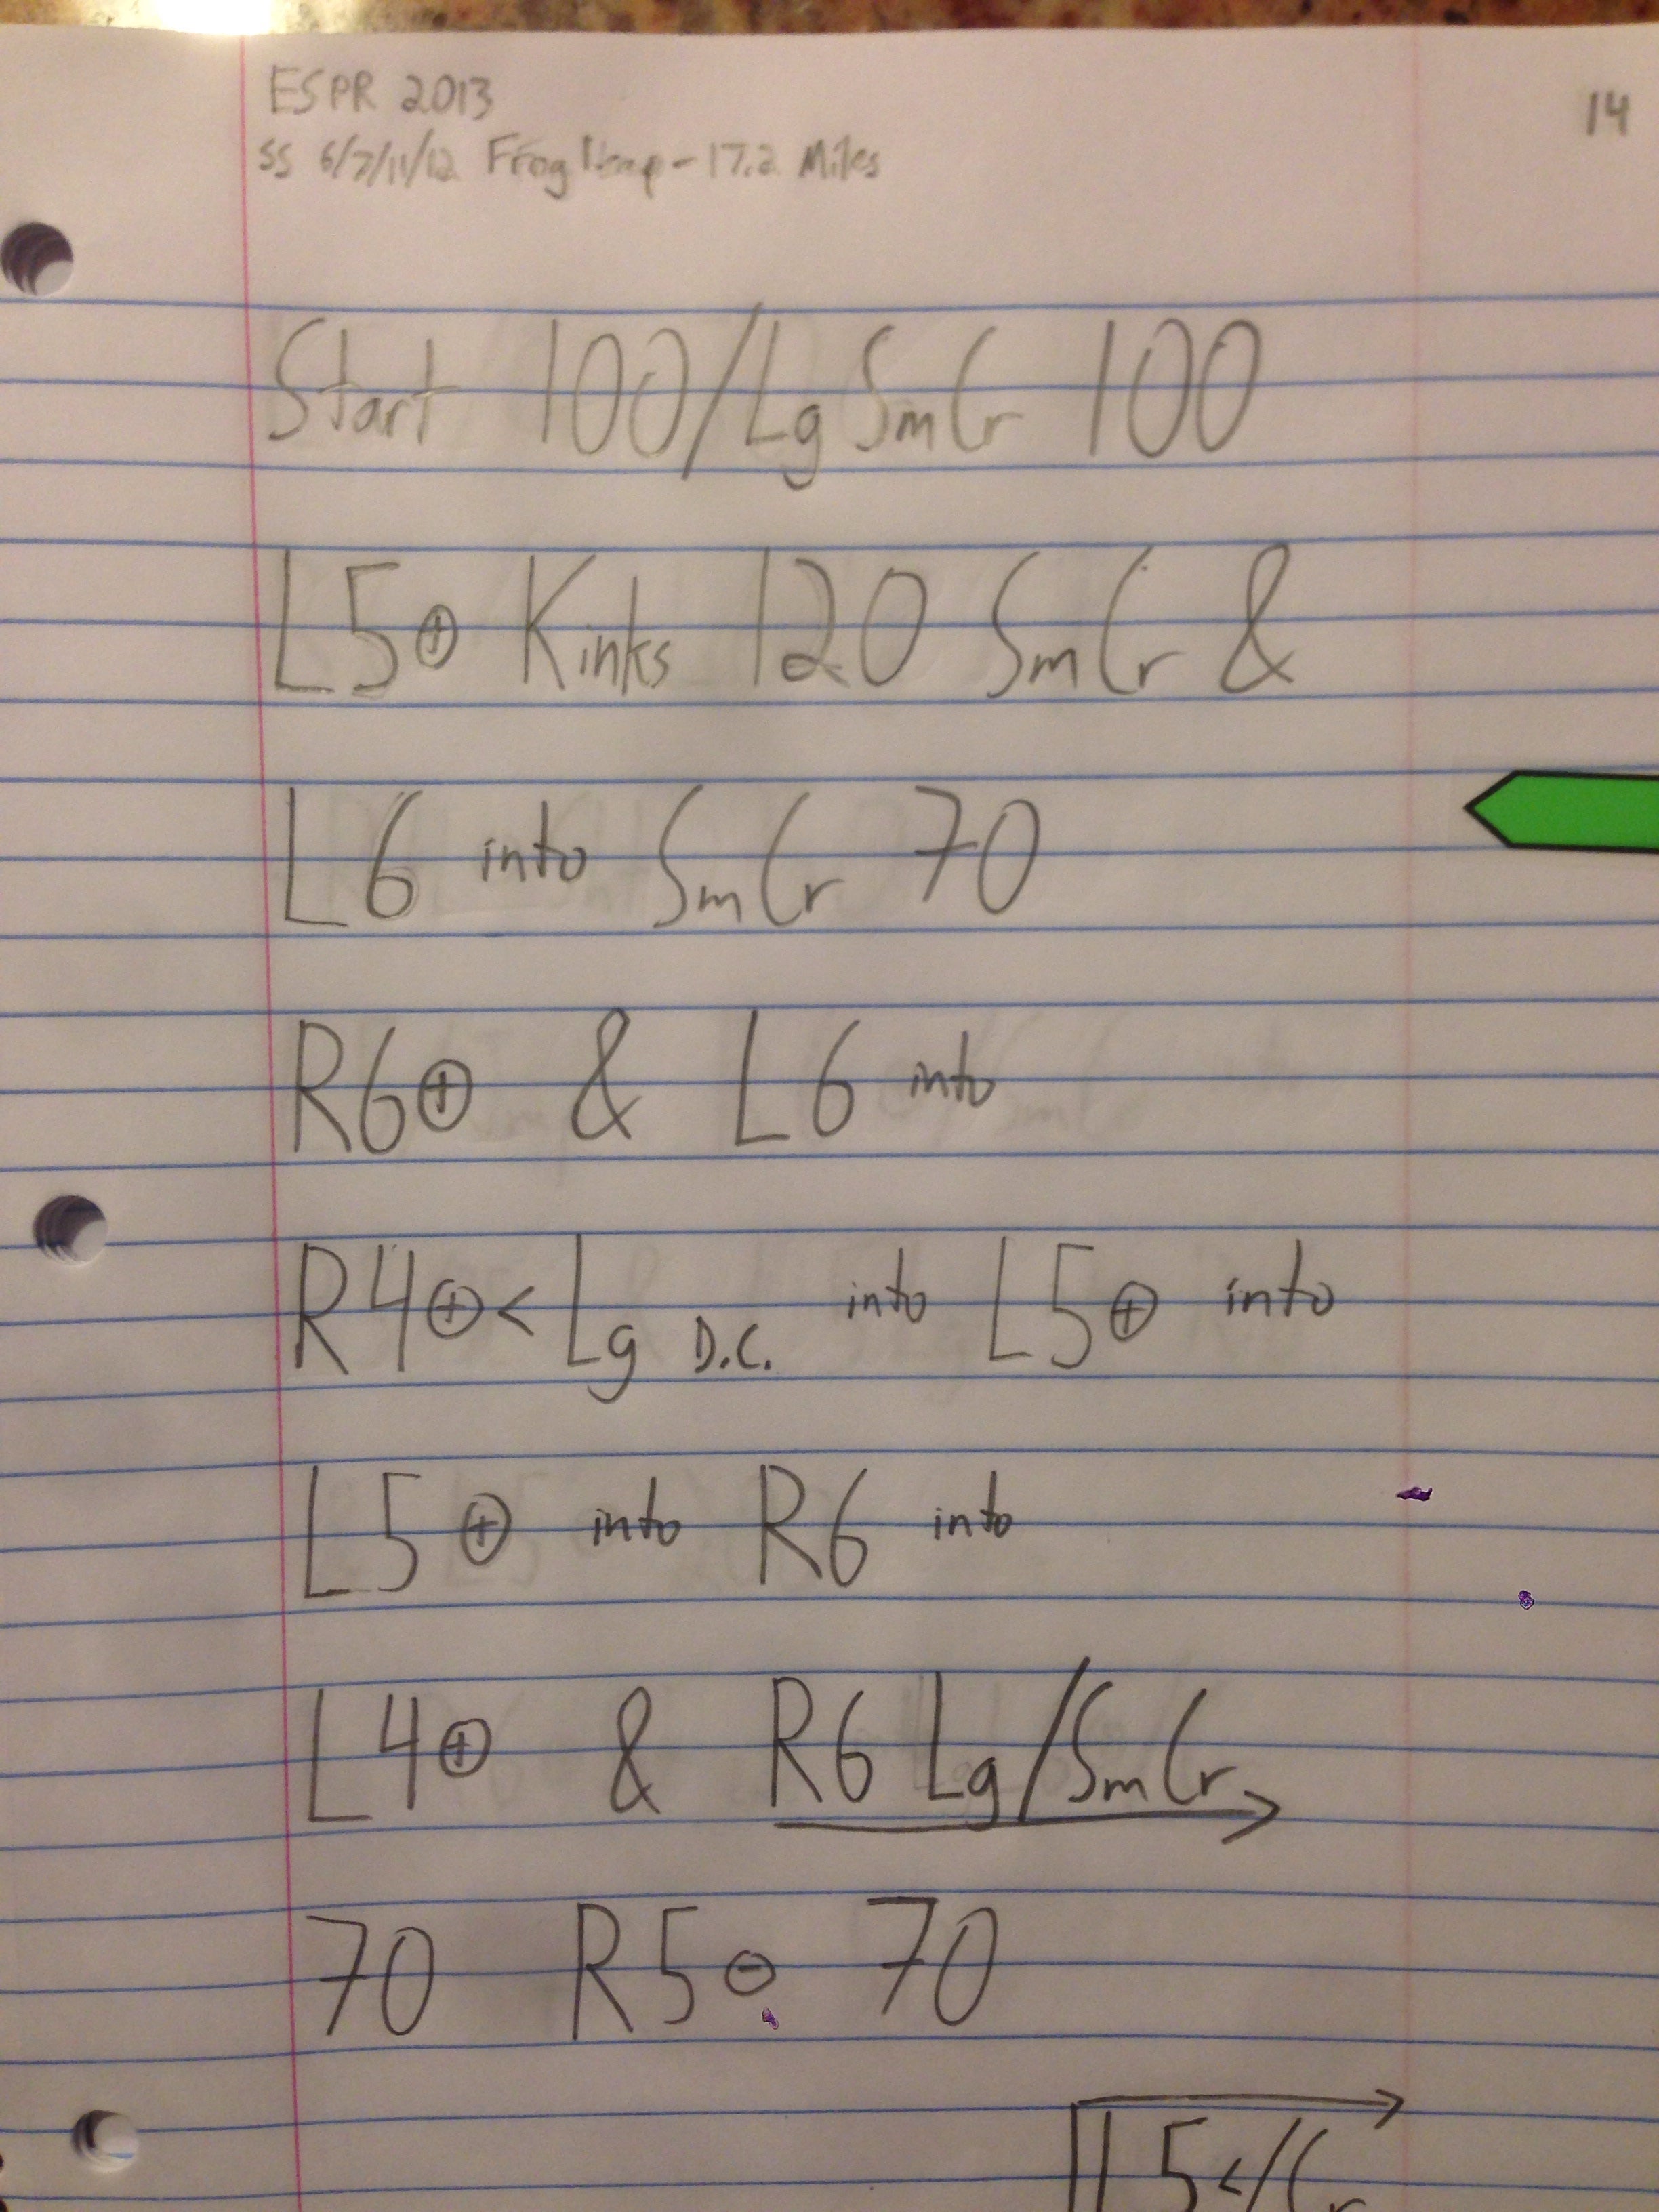 ESPR 2013
14
SS 6/7/11/12 Frog Heap - 17.2 Miles
Start 100/Lg SmCr 100
L5⊕ Kinks 120 SmCr &
L6 into SmCr 70
R6⊕ & L6 into
R4⊕< Lg D.C. into L5⊕ into
L5⊕ into R6 into
L4⊕ & R6 Lg/SmCr
70 R5⊖ 70
L5</Cr